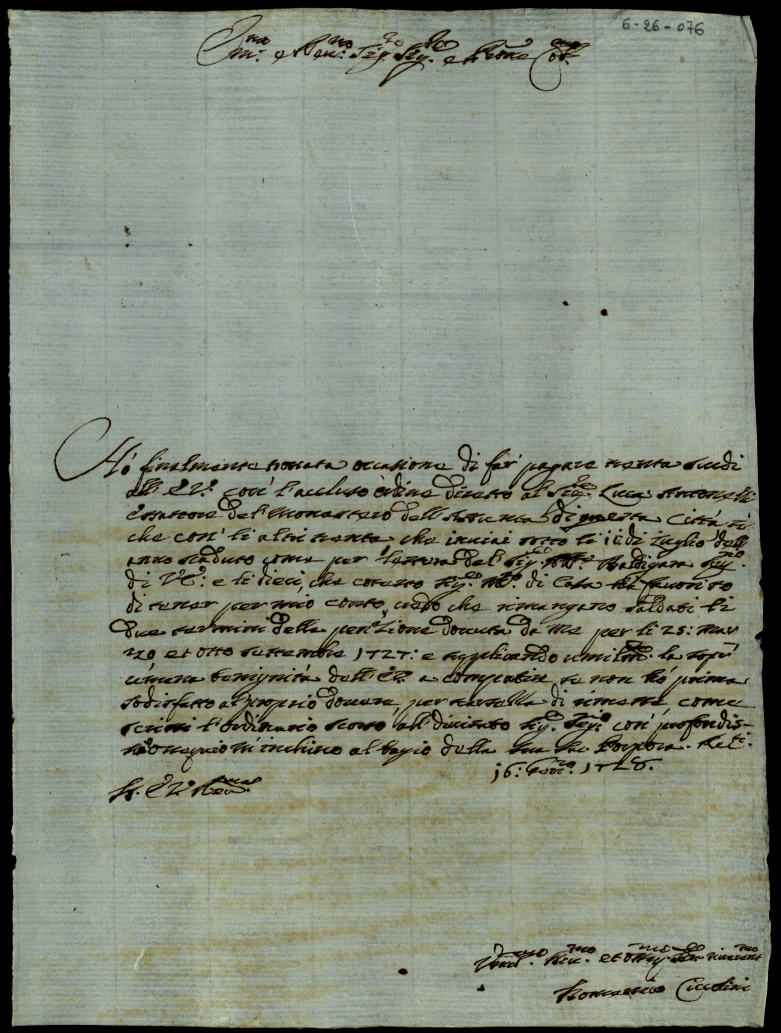 6-26-076
Em.mo e Rev.mo Sig.r Sig.r e P̃rone Col.mo
Hò finalmente trovata occasione di far pagare trenta scudi
all' E.V. con l'accluso ordine diretto al Sig.r Luca Simonelli
Essattore del Monastero dell' Assunta di questa Città, si
che con li altri trenta che inviai sotto li 11 di Luglio dell'
anno scaduto come per lettera del Sig.r Baldigara
di V.E: e li dieci, che cotesto Sig.r M.ro di Casa hà favorito
di tener per mio conto, credo che rimangano saldati li
due termini della penzione dovuta da me per li 25: Mar
zo et otto settembre 1727: e supplicando umilm.te la sopr
umana benignità dell' E.V. a compatire se non hò prima
sodisfatto al proprio dovere, per
scrissi l'ordinario scorso all' divisato Sig.r con profondis-
mo ossequio m'inchino al bagio della Porpora.
16: Gen.ro 1728.
D. E.V. Rev.ma
Umil.mo Dev.mo et Obblig.mo Ser.re
Ciccolini